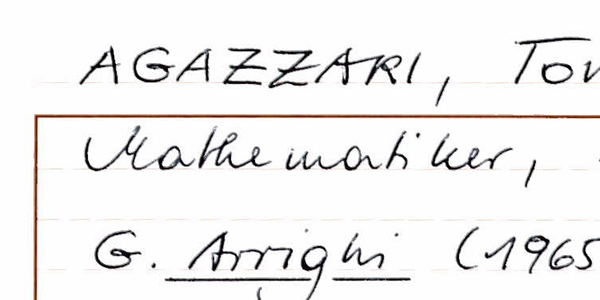 AGAZZARI, Tom
Mathematiker,
G. Arrighi (1965